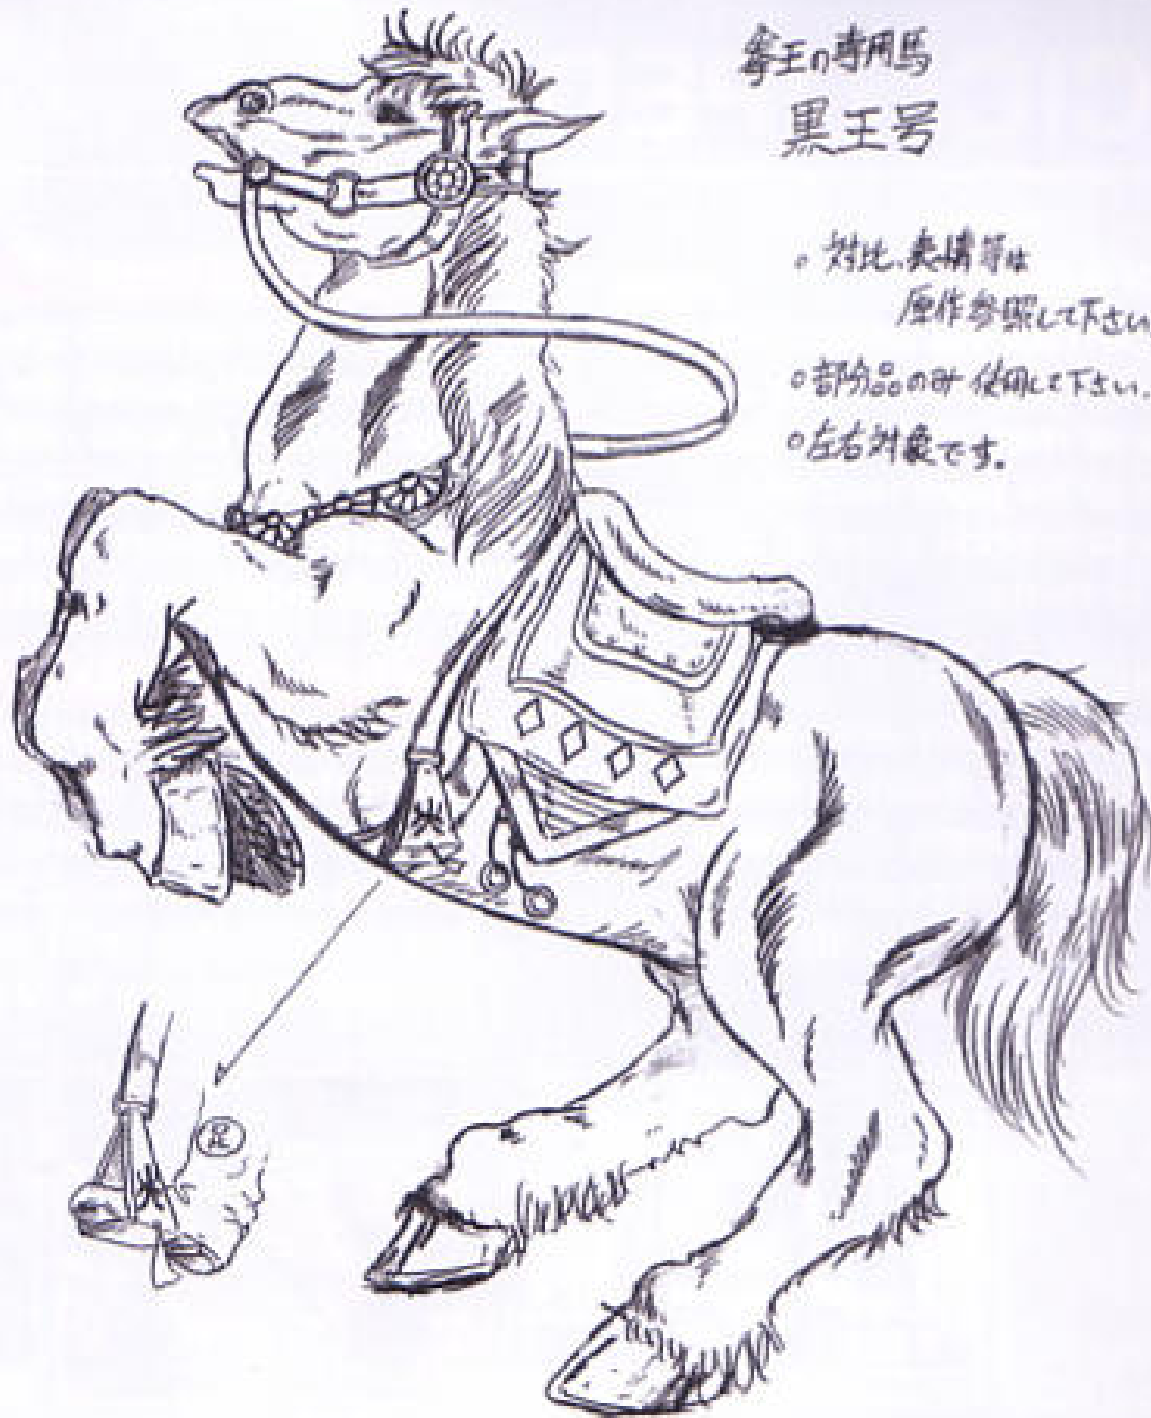 拳王の専用馬
黒王号
○対比、表情等は
原作参照して下さい
○部分品のみ使用して下さい。
○左右対象です。